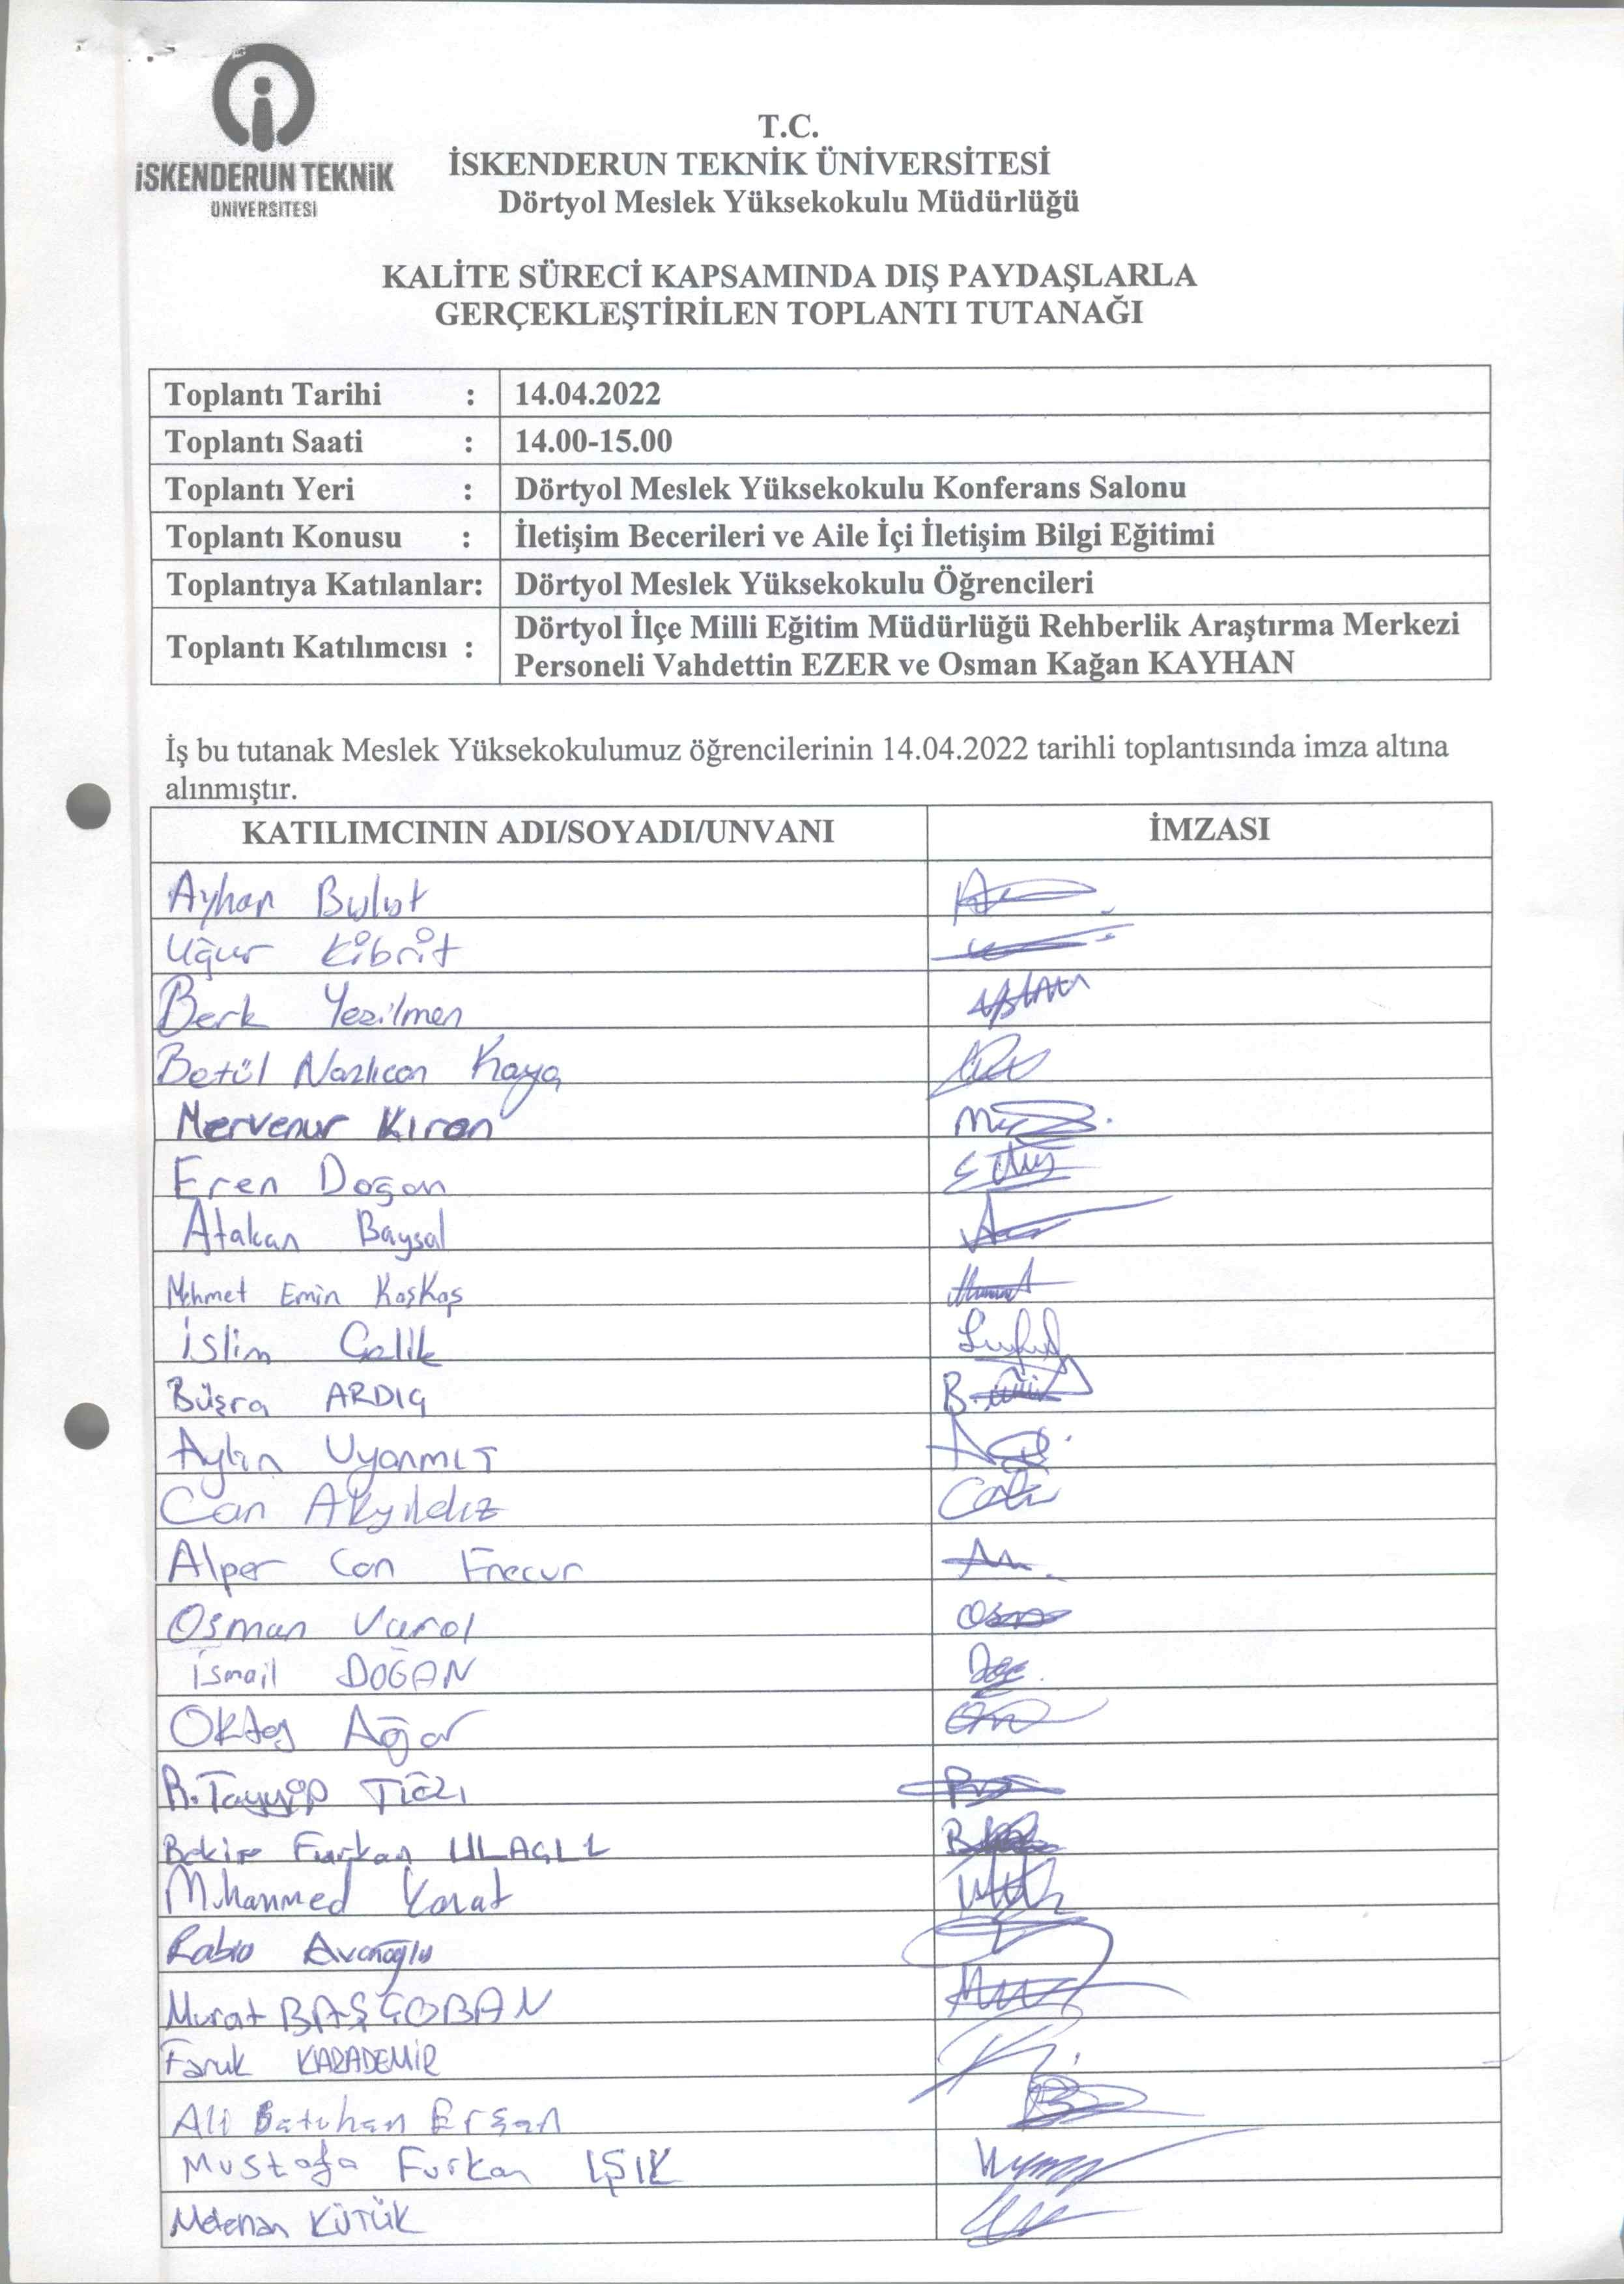 İSKENDERUN TEKNİK
ÜNİVERSİTESİ
T.C.
İSKENDERUN TEKNİK ÜNİVERSİTESİ
Dörtyol Meslek Yüksekokulu Müdürlüğü
KALİTE SÜRECİ KAPSAMINDA DIŞ PAYDAŞLARLA
GERÇEKLEŞTİRİLEN TOPLANTI TUTANAĞI
Toplantı Tarihi : 14.04.2022
Toplantı Saati : 14.00-15.00
Toplantı Yeri : Dörtyol Meslek Yüksekokulu Konferans Salonu
Toplantı Konusu : İletişim Becerileri ve Aile İçi İletişim Bilgi Eğitimi
Toplantıya Katılanlar: Dörtyol Meslek Yüksekokulu Öğrencileri
Toplantı Katılımcısı : Dörtyol İlçe Milli Eğitim Müdürlüğü Rehberlik Araştırma Merkezi
Personeli Vahdettin EZER ve Osman Kağan KAYHAN
İş bu tutanak Meslek Yüksekokulumuz öğrencilerinin 14.04.2022 tarihli toplantısında imza altına
alınmıştır.
KATILIMCININ ADI/SOYADI/UNVANI İMZASI
Ayhan Bulut
Uğur Kibrit
Berk Yezilmen
Betül Nazlıcan Kaya
Mervenur Kıran
Eren Doğan
Atakan Baysal
Mehmet Emin Kaşkaş
İslim Çelik
Büşra ARDIÇ
Aylin
Can Akyıldız
Alper Can
Osman Varol
İsmail DOĞAN
Oktay Ağar
R. Tayyip
Bekir Furkan ULAÇLI
Muhammed
Rabia Avanoğlu
Murat BAŞÇOBAN
Faruk KARADEMİR
Ali Batuhan Erşan
Mustafa Furkan IŞIK
KÜTÜK